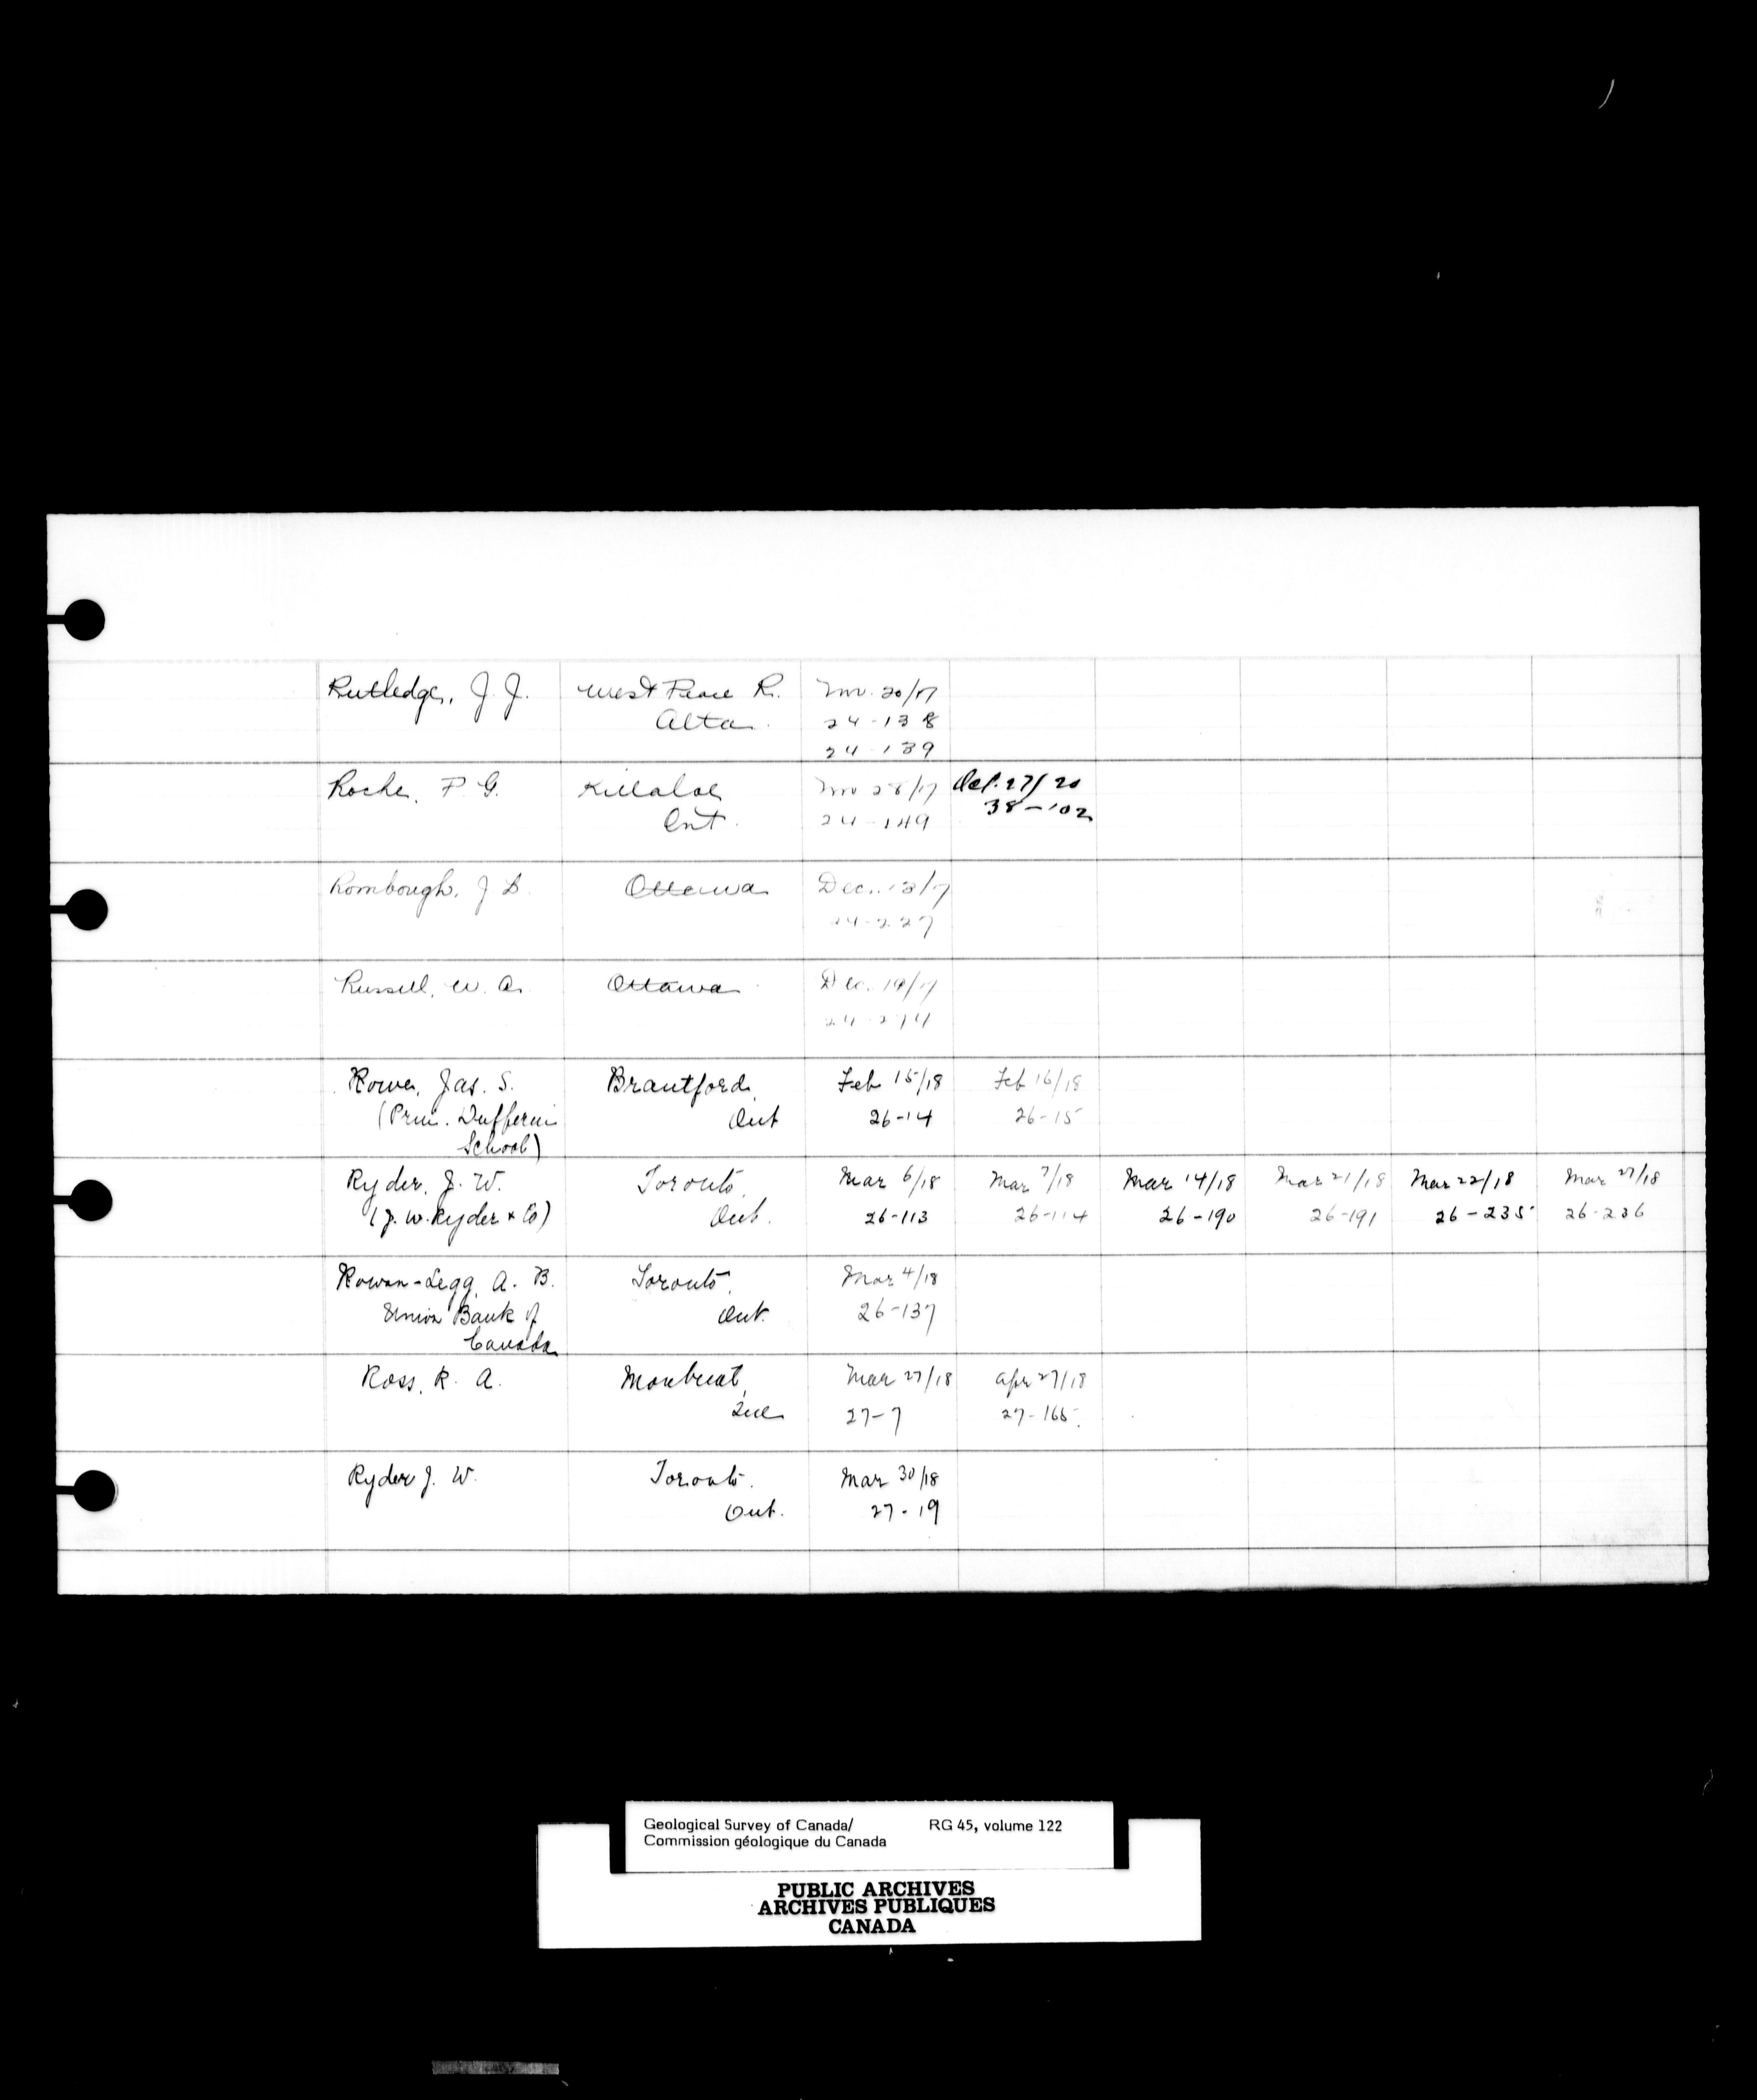 Rutledge, J. J.
West Peace R.
Alta.
Nov. 20/17
24-138
24-139
Roche, P. G.
Killaloe
Ont.
Nov 28/17
24-149
Oct. 27/20
38-102
Rombough, J
Ottawa
Dec. 13/17
24-227
Russell, W. A.
Ottawa
Dec. 19/17
24-274
Rowe, Jas. S.
(Prin. Dufferin
School)
Brantford,
Ont
Feb 15/18
26-14
Feb 16/18
26-15
Ryder, J. W.
(J. W. Ryder & Co)
Toronto,
Ont.
Mar 6/18
26-113
Mar 7/18
26-114
Mar 14/18
26-190
Mar 21/18
26-191
Mar 22/18
26-235
Mar 27/18
26-236
Rowan-Legg, A. B.
Union Bank of
Canada
Toronto,
Ont.
Mar 4/18
26-137
Ross, R. A.
Montreal,
Que
Mar 27/18
27-7
Apr 27/18
27-165
Ryder J. W.
Toronto.
Ont.
Mar 30/18
27-19
Geological Survey of Canada/ RG 45, volume 122
Commission géologique du Canada
PUBLIC ARCHIVES
ARCHIVES PUBLIQUES
CANADA